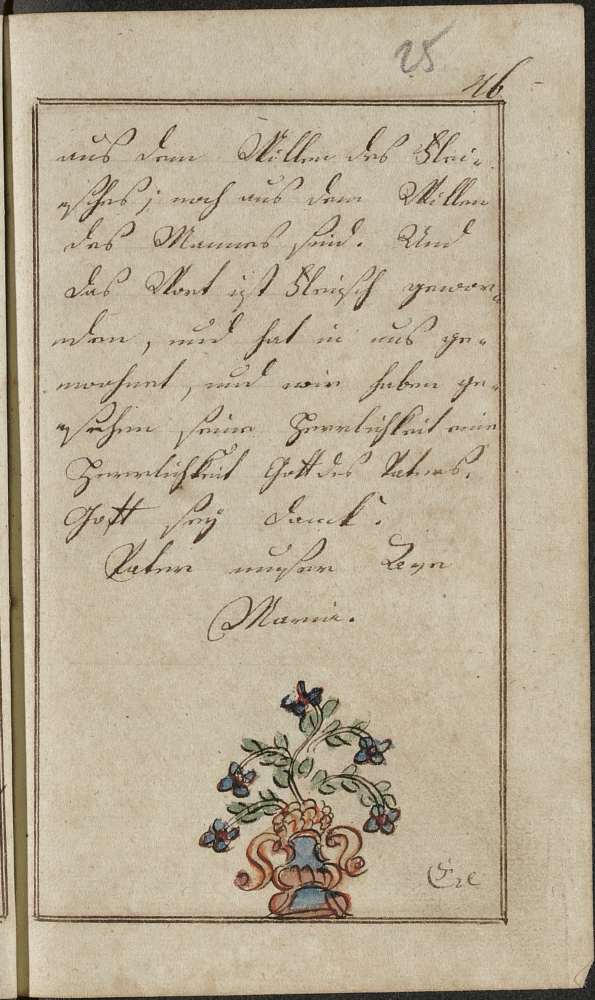 25
46
aus dem Willen des Flei-
sches; noch aus dem Willen
des Mannes sind. Und
das Wort ist Fleisch gewor-
den, und hat in uns ge-
wohnet, und wir haben ge-
sehen seine Herrlichkeit eine
Herrlichkeit Gott des Vaters.
Gott sey danck.
Vater unser Ave
Maria.